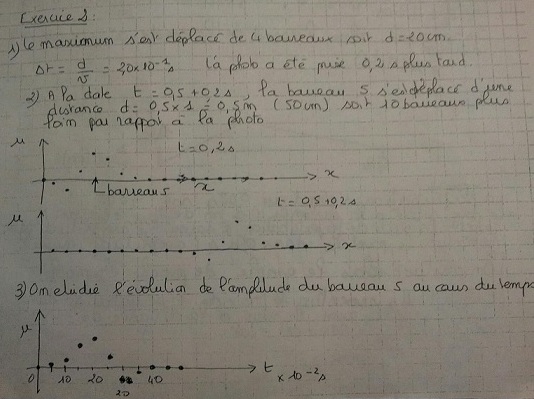 Exercice 2:
1) Le maximum s'est déplacé de 4 barreaux soit d=20cm.
Δt = d/v = 2,0×10⁻¹s la photo a été prise 0,2s plus tard.
2) A la date t=0,5+0,2s, la barreau 5 s'est déplacé d'une
distance d= 0,5×1 = 0,5m (50cm) soit 10 barreaux plus
loin par rappor à la photo
μ t=0,2s
x
barreau 5 x
μ t=0,5+0,2s
x
3) On etudie l'évolution de l'amplitude du barreau 5 au cours du temps
μ
0 10 20 40 t ×10⁻²s